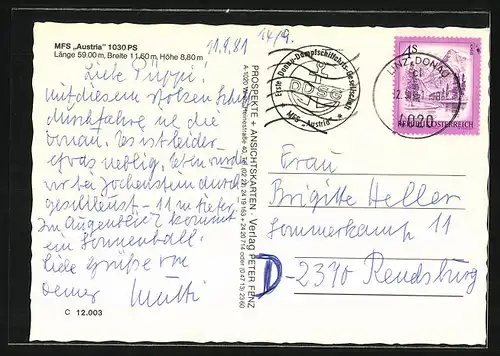 MFS „Austria" 1030 PS
Länge 59.00 m, Breite 11.60 m, Höhe 8,80 m
11.9.81
14/9.
Liebe Puppi!
mit diesem stolzen Schiff
durchfahre die
Donau. Es ist leider
etwas neblig. Eben wurden
wir bei Jochenstein durch
geschleust - 11 m tiefer.
Im Augenblick kommt
ein Sonnenball.
Liebe Grüße von
Deiner Mutti
C 12.003
PROSPEKTE + ANSICHTSKARTEN, Verlag PETER FENZ
Erste Donau-Dampfschiffahrts-Gesellschaft
DDSG
* MFS „Austria" *
LINZ-DONAU
4020
4 S
REPUBLIK ÖSTERREICH
Frau
Brigitte Heller
Sommerkamp 11
D-2370 Rendsburg